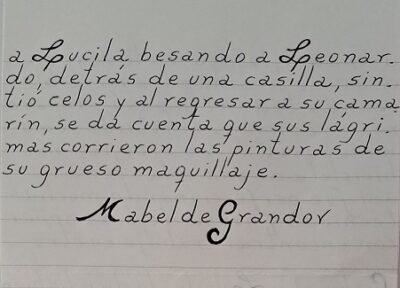 a Lucila besando a Leonar.
do, detrás de una casilla, sin_
tió celos y al regresar a su cama_
rín, se da cuenta que sus lágri.
mas corrieron las pinturas de
su grueso maquillaje.
Mabel de Grandov